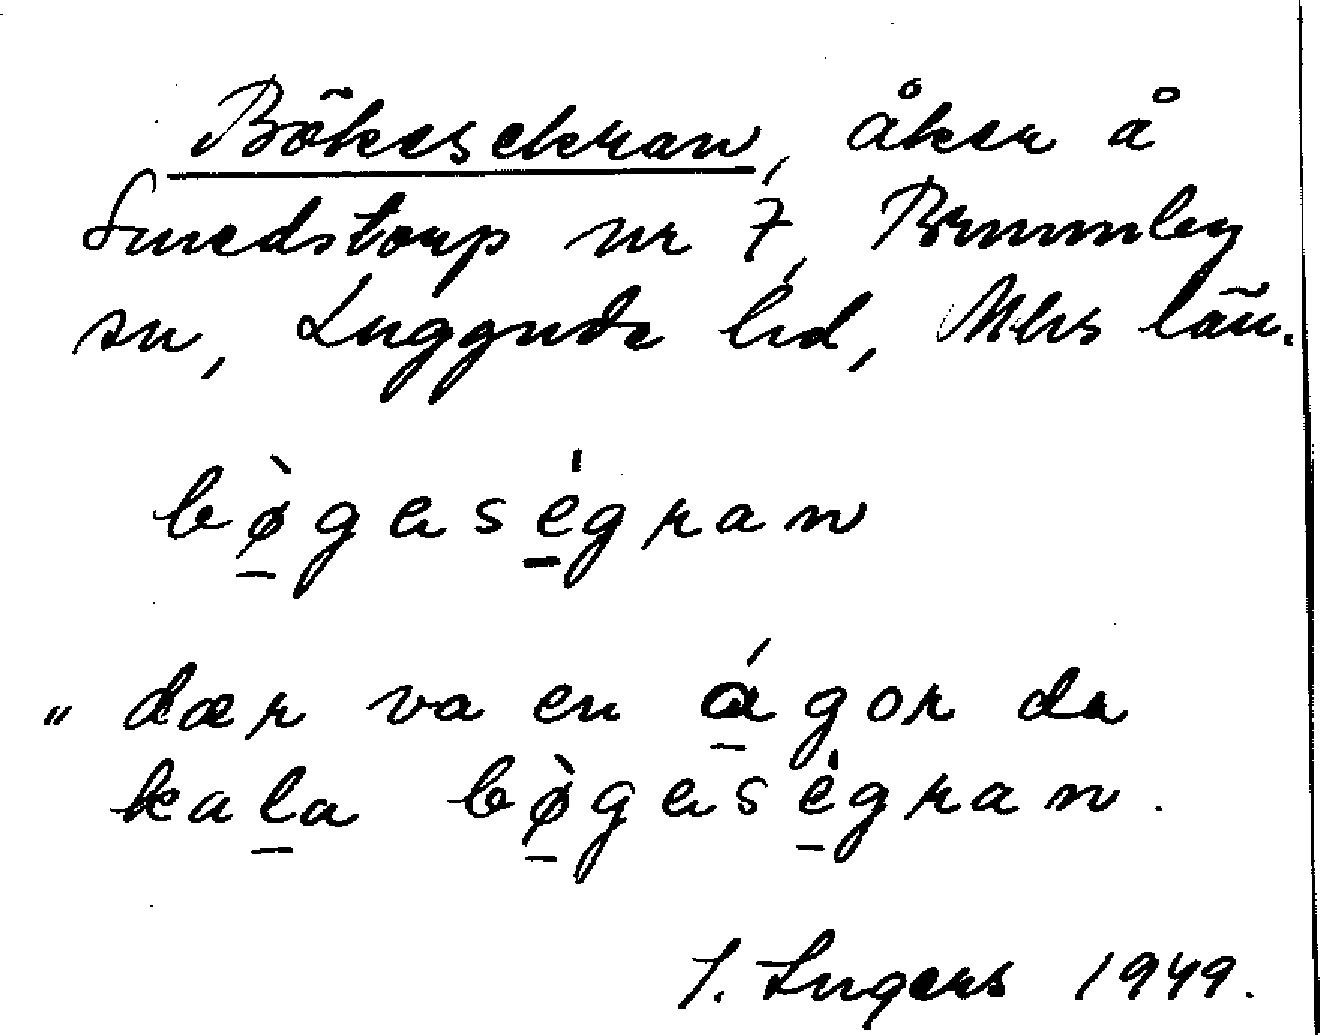 Bökesekran, åker å
Smedstorp nr 7, Brunnby
sn, Luggude hd, Mhs län.
bø̀geségran
„ dær va en ágor de
kala bø̀gesègran.
I. Ingers 1949.